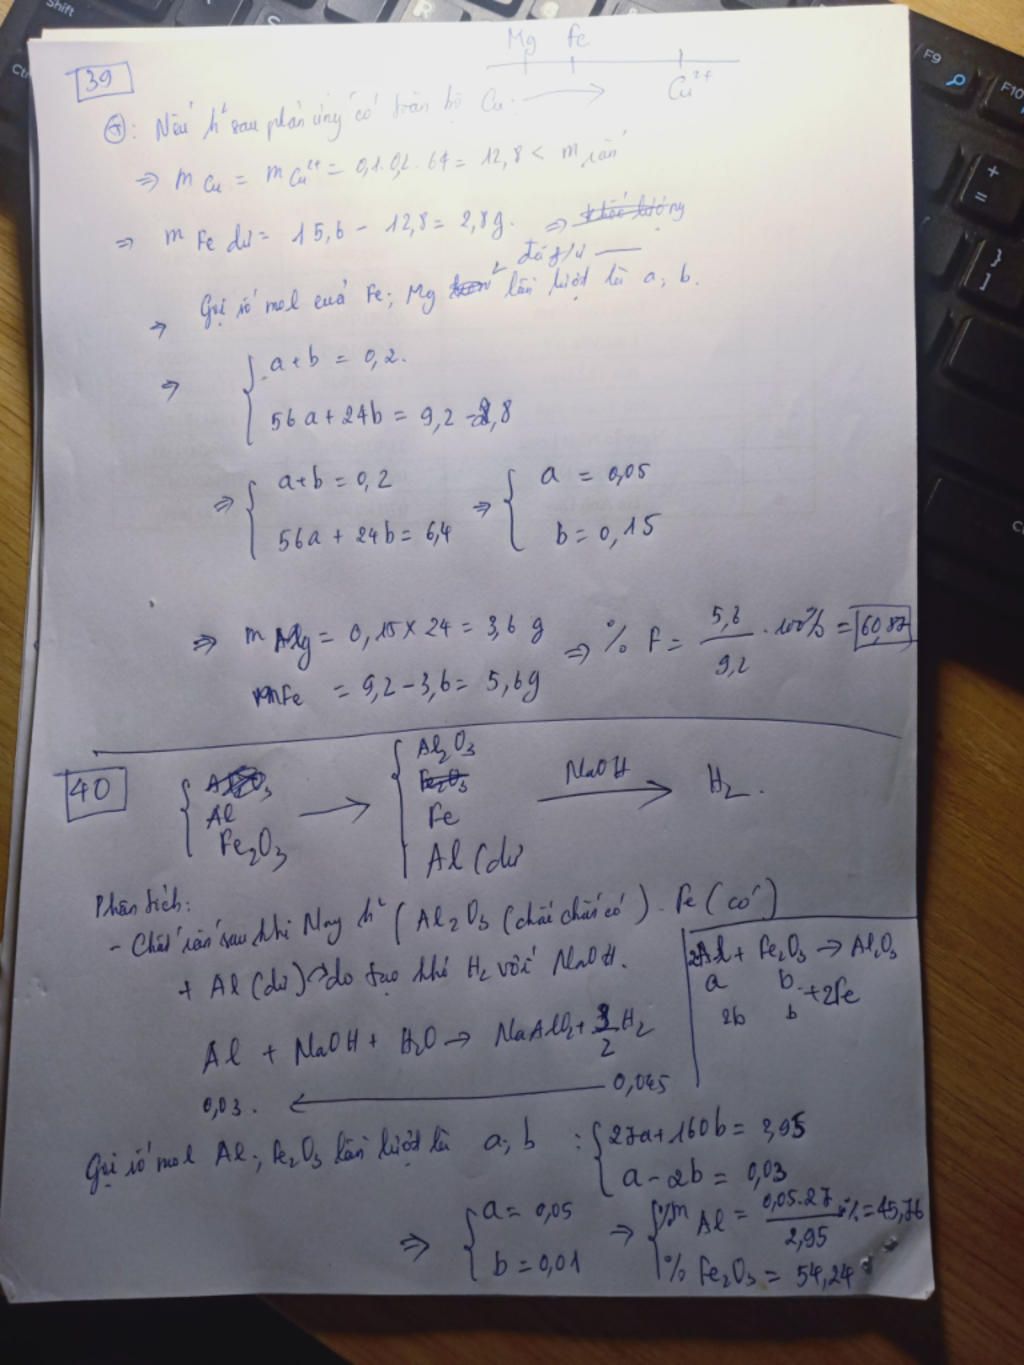 Mg Fe Cu²⁺
39
(+): Nếu h² sau phản ứng có toàn bộ Cu.
⇒ m Cu = m Cu²⁺ = 0,1.0,2.64 = 12,8 < m rắn
⇒ m Fe dư = 15,6 - 12,8 = 2,8g. ⇒ khối lượng
⇒ Gọi số mol của Fe; Mg đã p/ư lần lượt là a; b.
⇒ { a+b = 0,2.
56a + 24b = 9,2 - 2,8
⇒ { a+b = 0,2 ⇒ { a = 0,05
56a + 24b = 6,4 b = 0,15
⇒ m Mg = 0,15 × 24 = 3,6 g ⇒ % F = 5,6/9,2 . 100% = 60,87
mFe = 9,2 - 3,6 = 5,6g
40
{ Al Fe₂O₃ → { Al₂O₃ Fe₂O₃ Fe Al (dư NaOH → H₂.
Phân tích:
- Chất rắn sau khi Nung h² (Al₂O₃ (chắc chắn có). Fe (có)
+ Al (dư) → do tạo khí H₂ với NaOH.
2Al + Fe₂O₃ → Al₂O₃
a b +2Fe
2b b
Al + NaOH + H₂O → NaAlO₂ + 3/2 H₂
0,03. ← 0,045
Gọi số mol Al; Fe₂O₃ lần lượt là a; b : { 27a + 160b = 2,95
a - 2b = 0,03
⇒ { a = 0,05 ⇒ { %m Al = 0,05.27/2,95 % = 45,76
b = 0,01 % Fe₂O₃ = 54,24
Shift
F9
F10
+
=
}
]